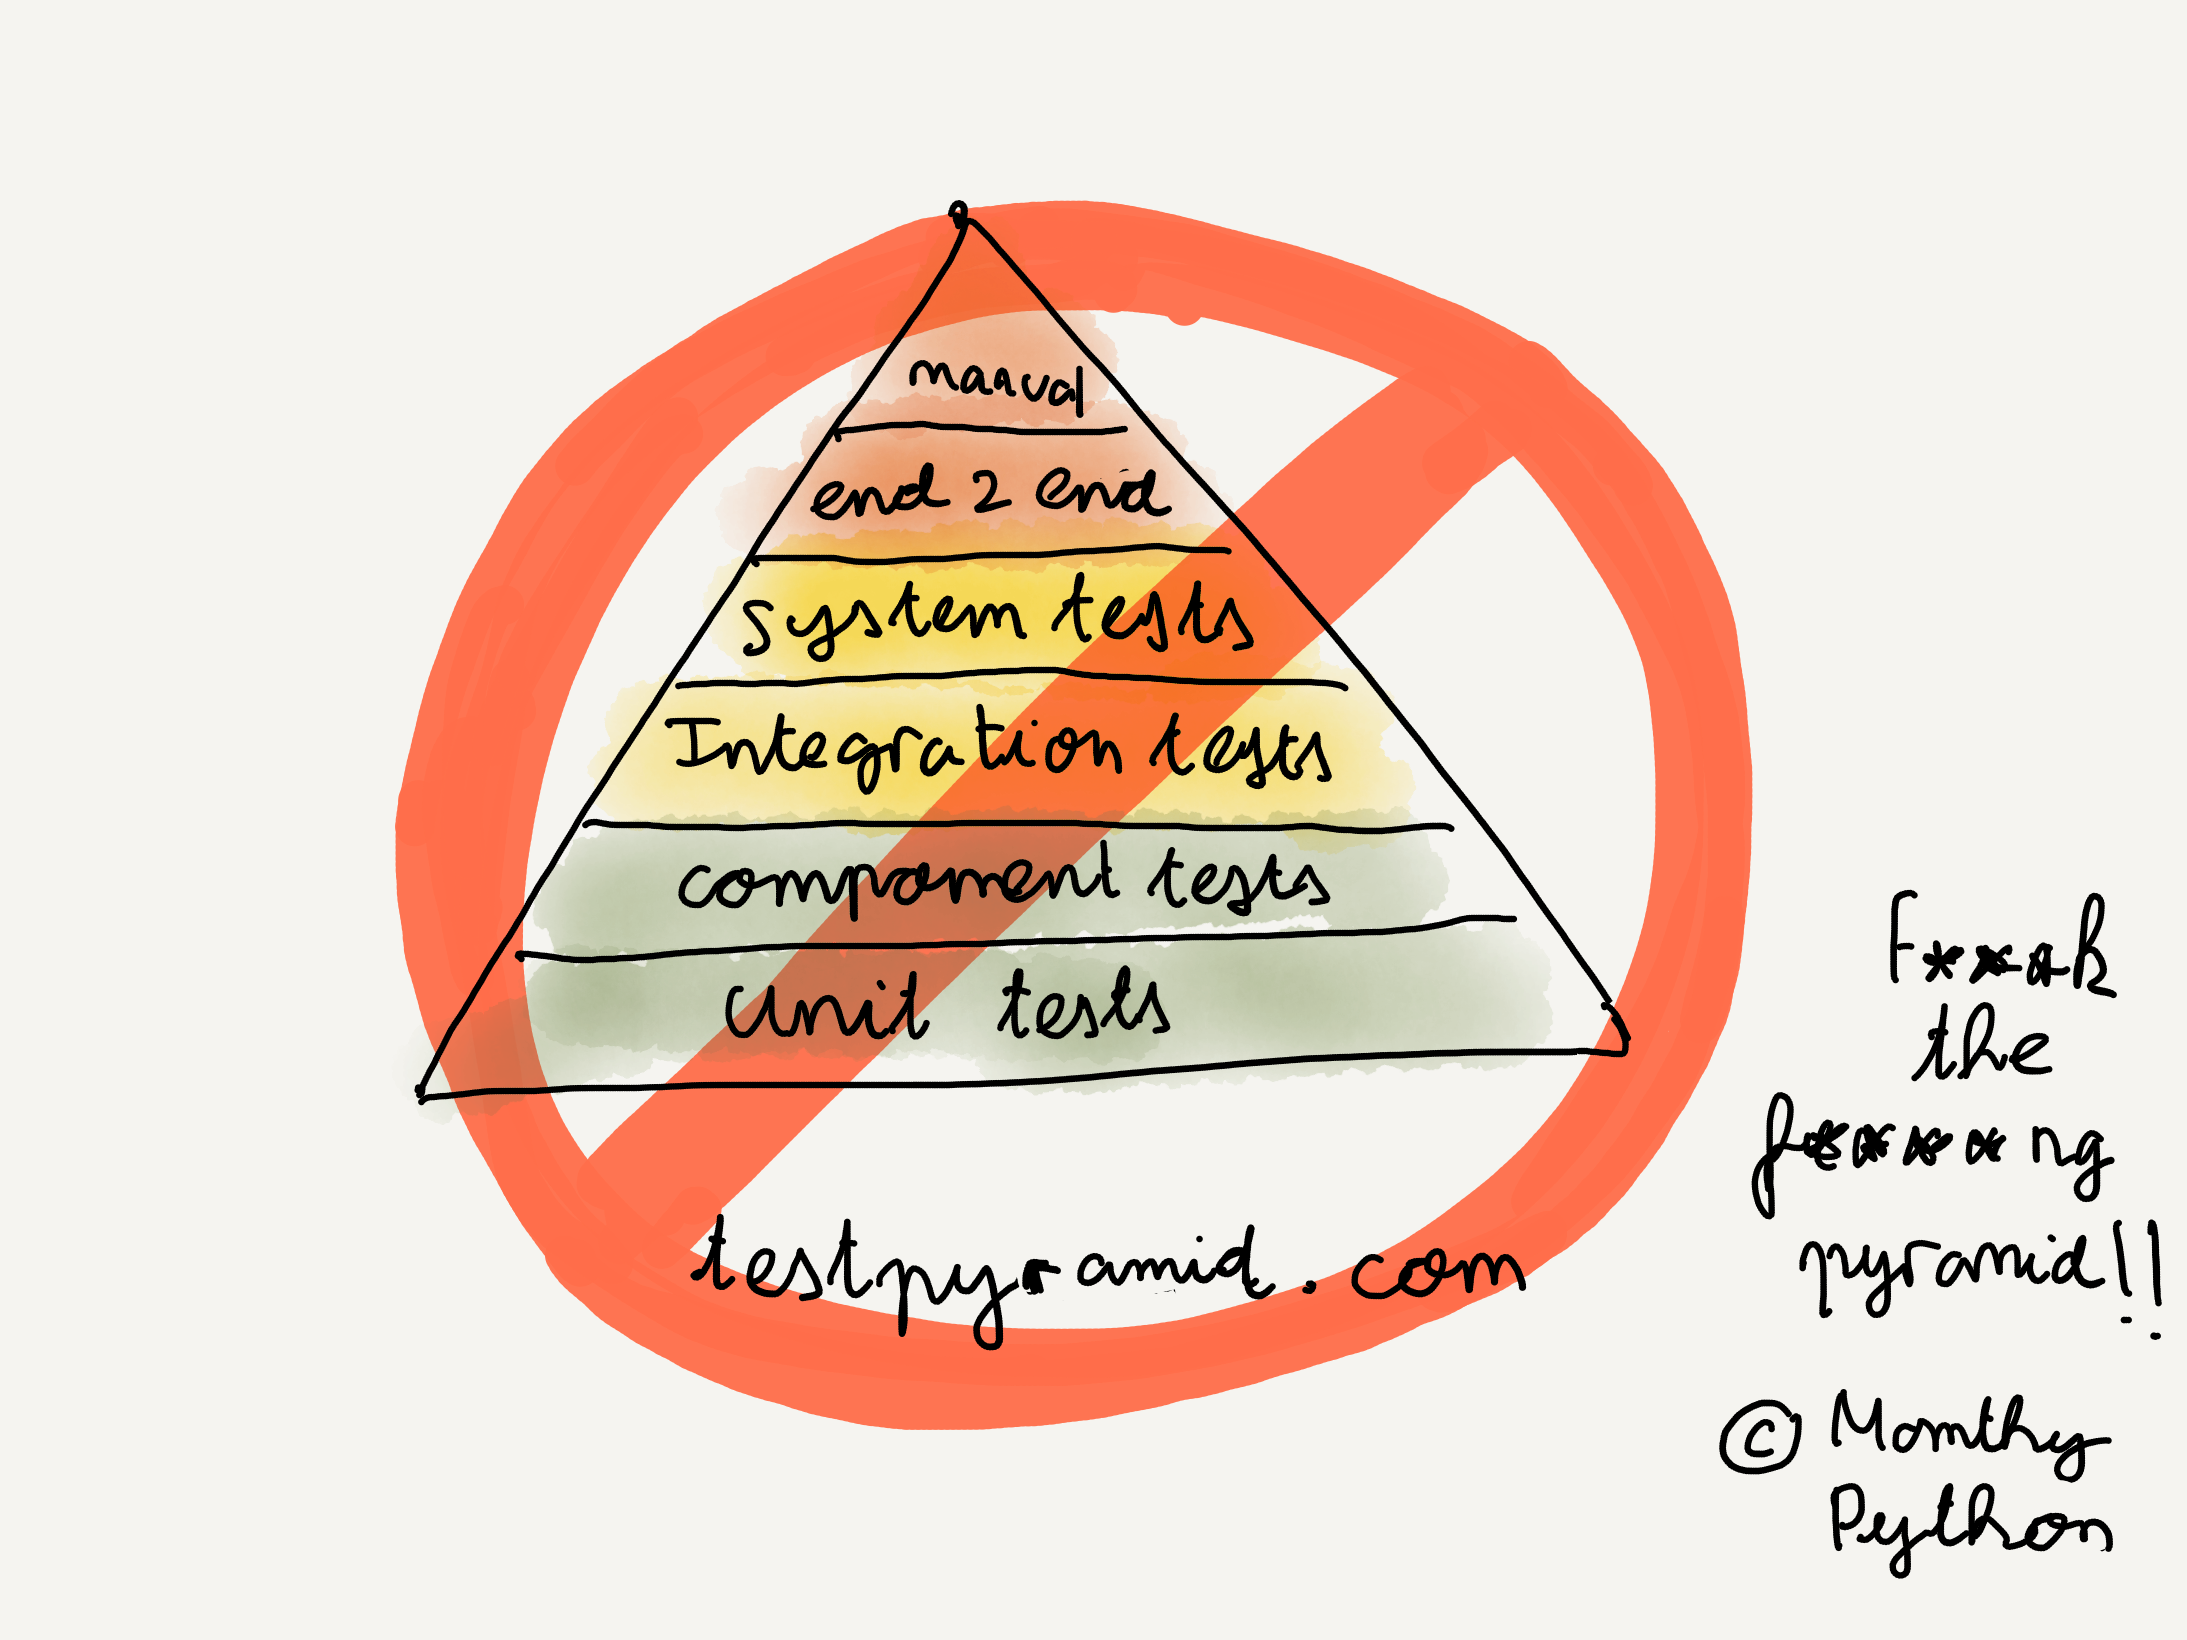 manual
end 2 end
system tests
Integration tests
component tests
unit tests
testpyramid.com
F***k
the
f****ng
pyramid!!
© Monthy
Python